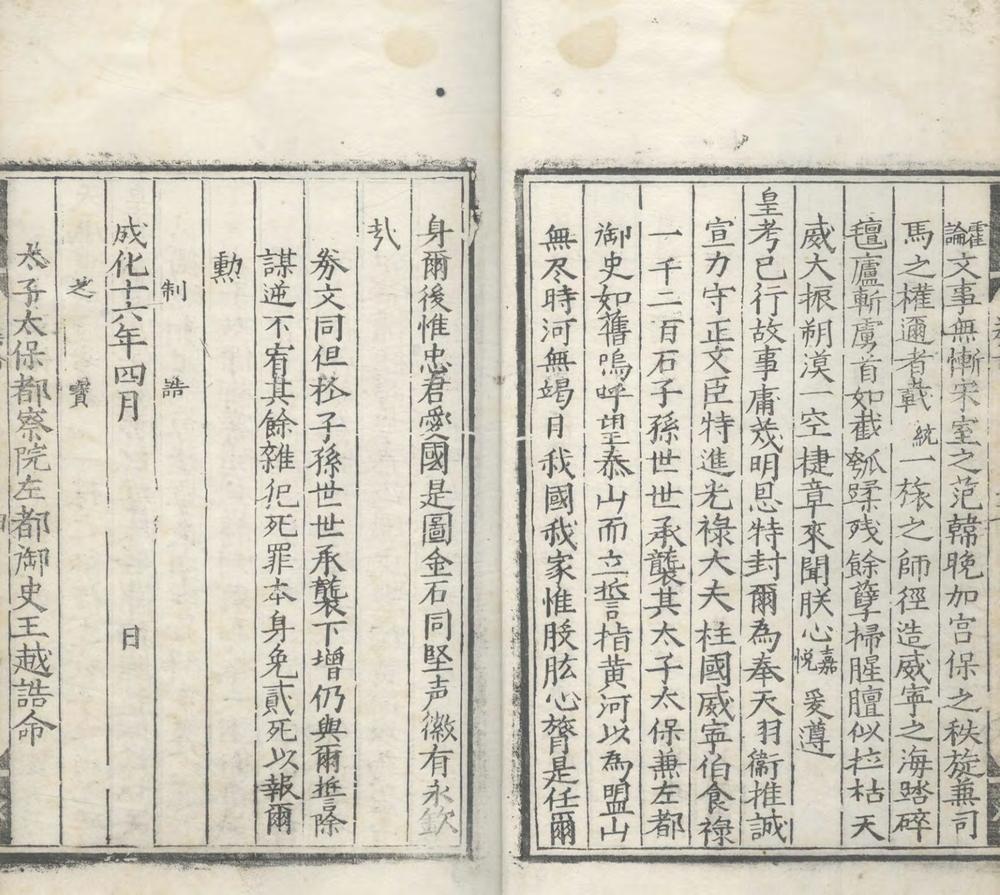 霍論文事無慚宋室之范韓晚加宮保之秩旋兼司
馬之權邇者戴統一旅之師徑造威寧之海踏碎
氊廬斬虜首如截瓠蹂残餘孽掃腥膻似拉枯天
威大振朔漠一空捷章來聞朕心嘉悅爰遵
皇考已行故事庸茂明恩特封爾為奉天羽衛推誠
宣力守正文臣特進光祿大夫柱國威寧伯食祿
一千二百石子孫世世承襲其太子太保兼左都
御史如舊嗚呼望泰山而立誓指黄河以為盟山
無尽時河無竭日我國我家惟股肱心膂是任爾
身爾後惟忠君愛國是圖金石同堅声徽有永欽
哉
券文同但於子孫世世承襲下增仍與爾誓除
謀逆不宥其餘雜犯死罪本身免貳死以報爾
勲
制誥
成化十六年四月 日
之寶
太子太保都察院左都御史王越誥命